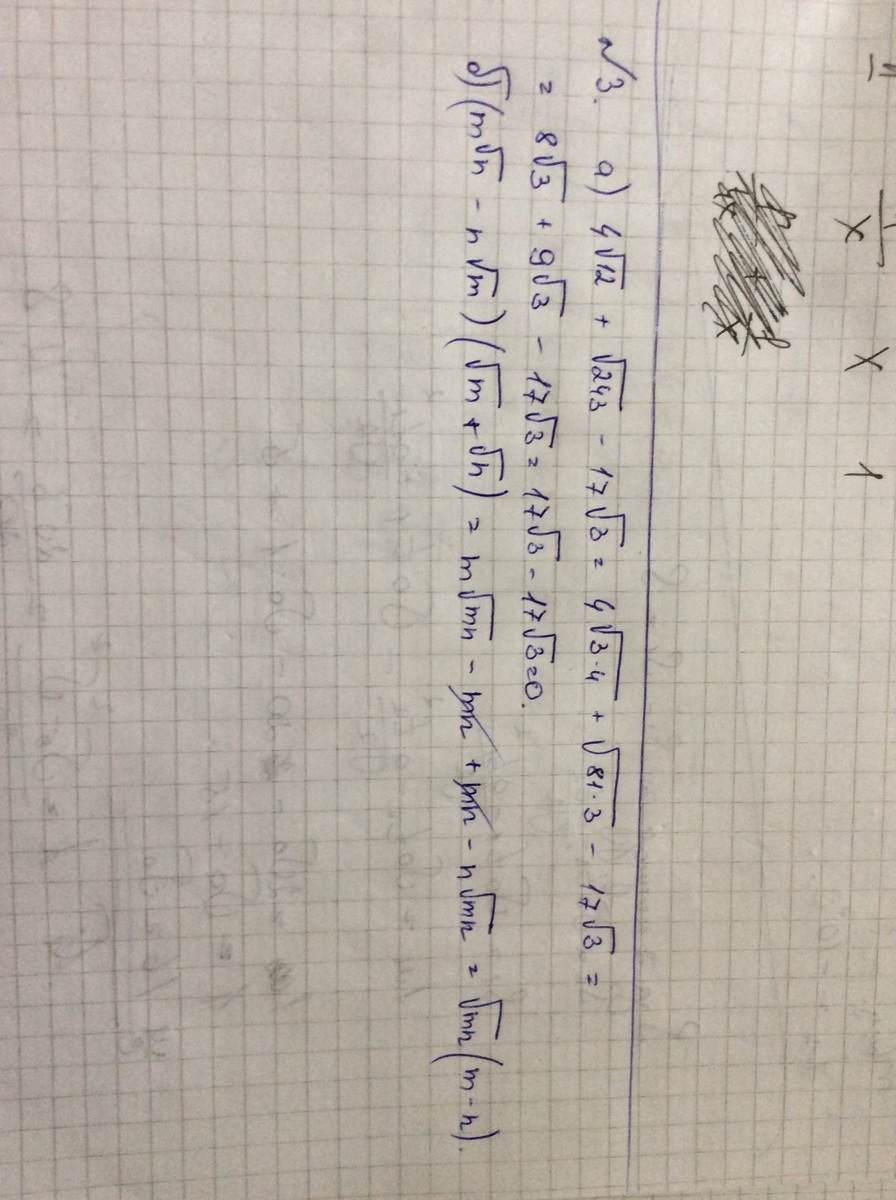 №3. а) 4√12 + √243 - 17√3 = 4√3·4 + √81·3 - 17√3 =
= 8√3 + 9√3 - 17√3 = 17√3 - 17√3 = 0.
б) (m√n - n√m)(√m + √n) = m√mn - mn + mn - n√mn = √mn(m - n).